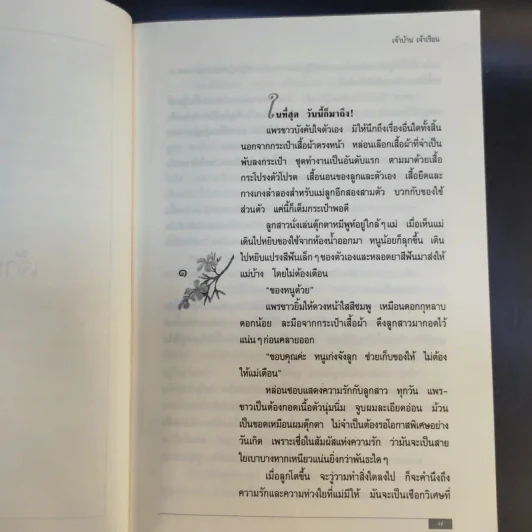 เจ้าบ้าน เจ้าเรือน
ในที่สุด วันนี้ก็มาถึง!
แพรขาวบังคับใจตัวเอง มิให้นึกถึงเรื่องอื่นใดทั้งสิ้น
นอกจากกระเป๋าเสื้อผ้าตรงหน้า หล่อนเลือกเสื้อผ้าที่จำเป็น
พับลงกระเป๋า ชุดทำงานเป็นอันดับแรก ตามมาด้วยเสื้อ
กระโปรงตัวโปรด เสื้อนอนของลูกและตัวเอง เสื้อยืดและ
กางเกงลำลองสำหรับแม่ลูกอีกสองสามตัว บวกกับของใช้
ส่วนตัว แค่นี้ก็เต็มกระเป๋าพอดี
ลูกสาวนั่งเล่นตุ๊กตาหมีพูห์อยู่ใกล้ๆแม่ เมื่อเห็นแม่
เดินไปหยิบของใช้จากห้องน้ำออกมา หนูน้อยก็ลุกขึ้น เดิน
ไปหยิบแปรงสีฟันเล็กๆของตัวเองและหลอดยาสีฟันมาส่งให้
แม่บ้าง โดยไม่ต้องเตือน
๑
“ของหนูด้วย”
แพรขาวยิ้มให้ดวงหน้าใสสีชมพู เหมือนดอกกุหลาบ
ดอกน้อย ละมือจากกระเป๋าเสื้อผ้า ดึงลูกสาวมากอดไว้
แน่นๆก่อนคลายออก
“ขอบคุณค่ะ หนูเก่งจังลูก ช่วยเก็บของให้ ไม่ต้อง
ให้แม่เตือน”
หล่อนชอบแสดงความรักกับลูกสาว ทุกวัน แพร-
ขาวเป็นต้องกอดเนื้อตัวนุ่มนิ่ม จูบผมละเอียดอ่อน ม้วน
เป็นขอดเหมือนผมตุ๊กตา ไม่จำเป็นต้องรอโอกาสพิเศษอย่าง
วันเกิด เพราะเชื่อในสัมผัสแห่งความรัก ว่ามันจะเป็นสาย
ใยเบาบางหากเหนียวแน่นยิ่งกว่าพันธะใดๆ
เมื่อลูกโตขึ้น จะวู่วามทำสิ่งใดลงไป ก็จะคำนึงถึง
ความรักและความห่วงใยที่แม่มีให้ มันจะเป็นเชือกวิเศษที่